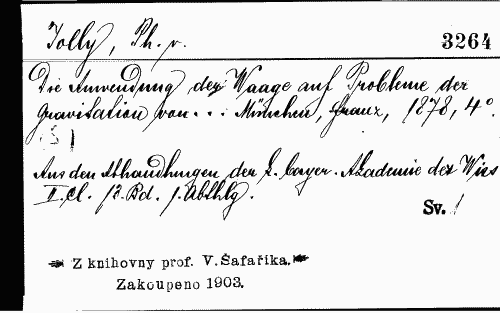 Jolly, Ph. v.
3264
Die Anwendung der Waage auf Probleme der
Gravitation von . . : München, Franz, 1878, 4°
Aus den Abhandlungen der k. bayer. Akademie der Wiss
II. Cl. 13. Bd. 1. Abthlg.
Sv. 1
Z knihovny prof. V. Šafaříka.
Zakoupeno 1903.